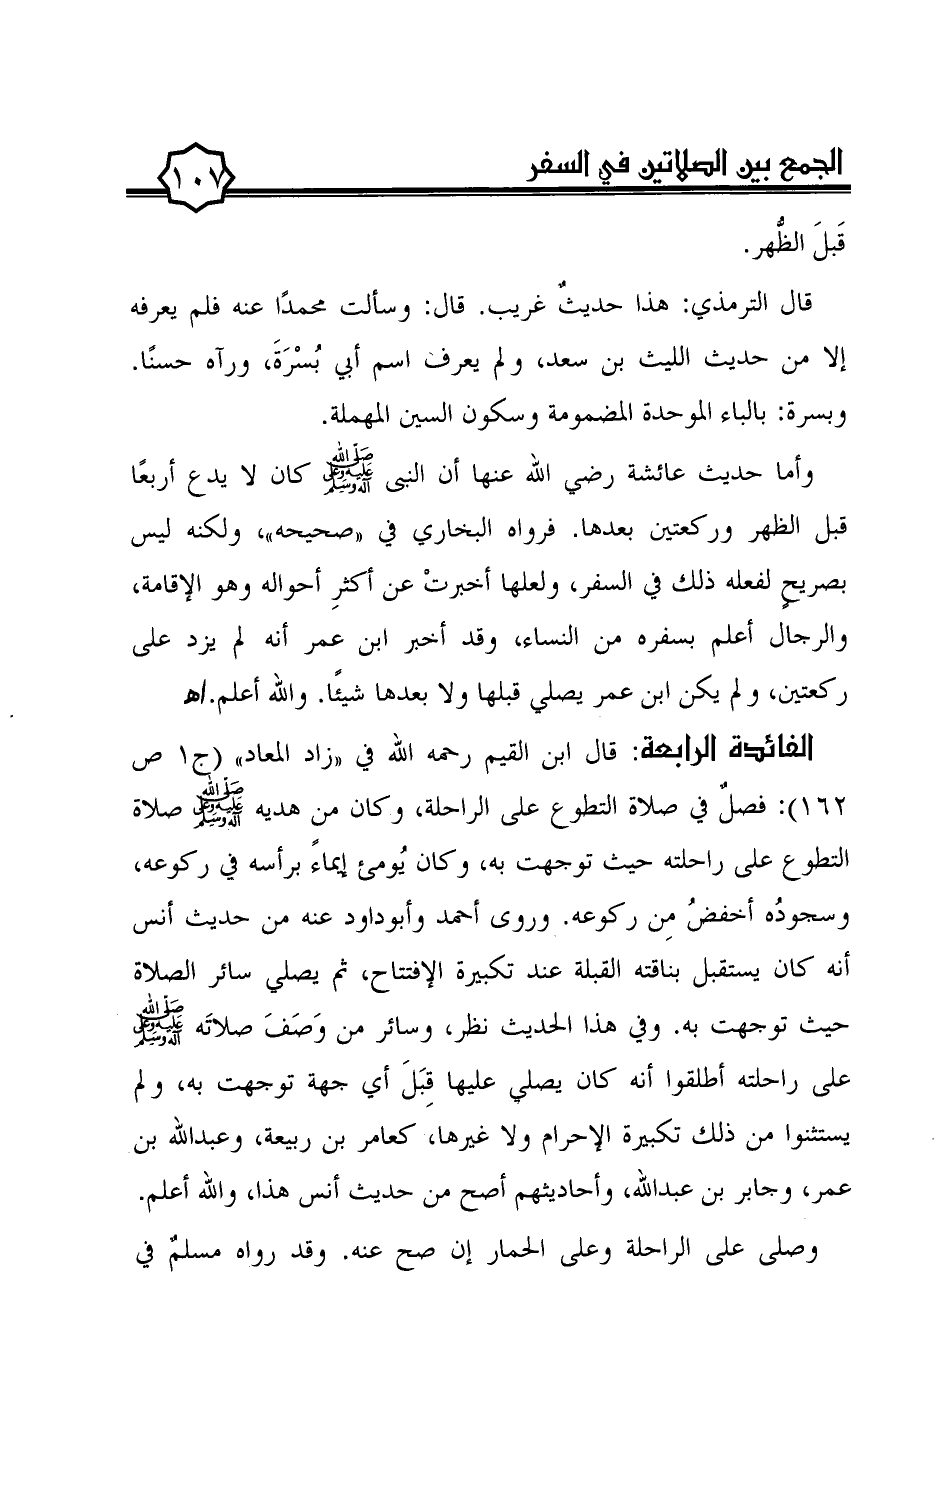 الجمع بين الصلاتين في السفر ١٠٧
قَبلَ الظُّهر.
قال الترمذي: هذا حديثٌ غريب. قال: وسألت محمدًا عنه فلم يعرفه
إلا من حديث الليث بن سعد، ولم يعرف اسم أبي بُسْرَةَ، ورآه حسنًا.
وبسرة: بالباء الموحدة المضمومة وسكون السين المهملة.
وأما حديث عائشة رضي الله عنها أن النبي ﷺ كان لا يدع أربعًا
قبل الظهر وركعتين بعدها. فرواه البخاري في «صحيحه»، ولكنه ليس
بصريحٍ لفعله ذلك في السفر، ولعلها أخبرتْ عن أكثرِ أحواله وهو الإقامة،
والرجال أعلم بسفره من النساء، وقد أخبر ابن عمر أنه لم يزد على
ركعتين، ولم يكن ابن عمر يصلي قبلها ولا بعدها شيئًا. والله أعلم./هـ
الفائدة الرابعة: قال ابن القيم رحمه الله في «زاد المعاد» (ج١ ص
١٦٢): فصلٌ في صلاة التطوع على الراحلة، وكان من هديه ﷺ صلاة
التطوع على راحلته حيث توجهت به، وكان يُومئ إيماءً برأسه في ركوعه،
وسجودُه أخفضُ مِن ركوعه. وروى أحمد وأبوداود عنه من حديث أنس
أنه كان يستقبل بناقته القبلة عند تكبيرة الإفتتاح، ثم يصلي سائر الصلاة
حيث توجهت به. وفي هذا الحديث نظر، وسائر من وَصَفَ صلاتَه ﷺ
على راحلته أطلقوا أنه كان يصلي عليها قِبَلَ أي جهة توجهت به، ولم
يستثنوا من ذلك تكبيرة الإحرام ولا غيرها، كعامر بن ربيعة، وعبدالله بن
عمر، وجابر بن عبدالله، وأحاديثهم أصح من حديث أنس هذا، والله أعلم.
وصلى على الراحلة وعلى الحمار إن صح عنه. وقد رواه مسلمٌ في